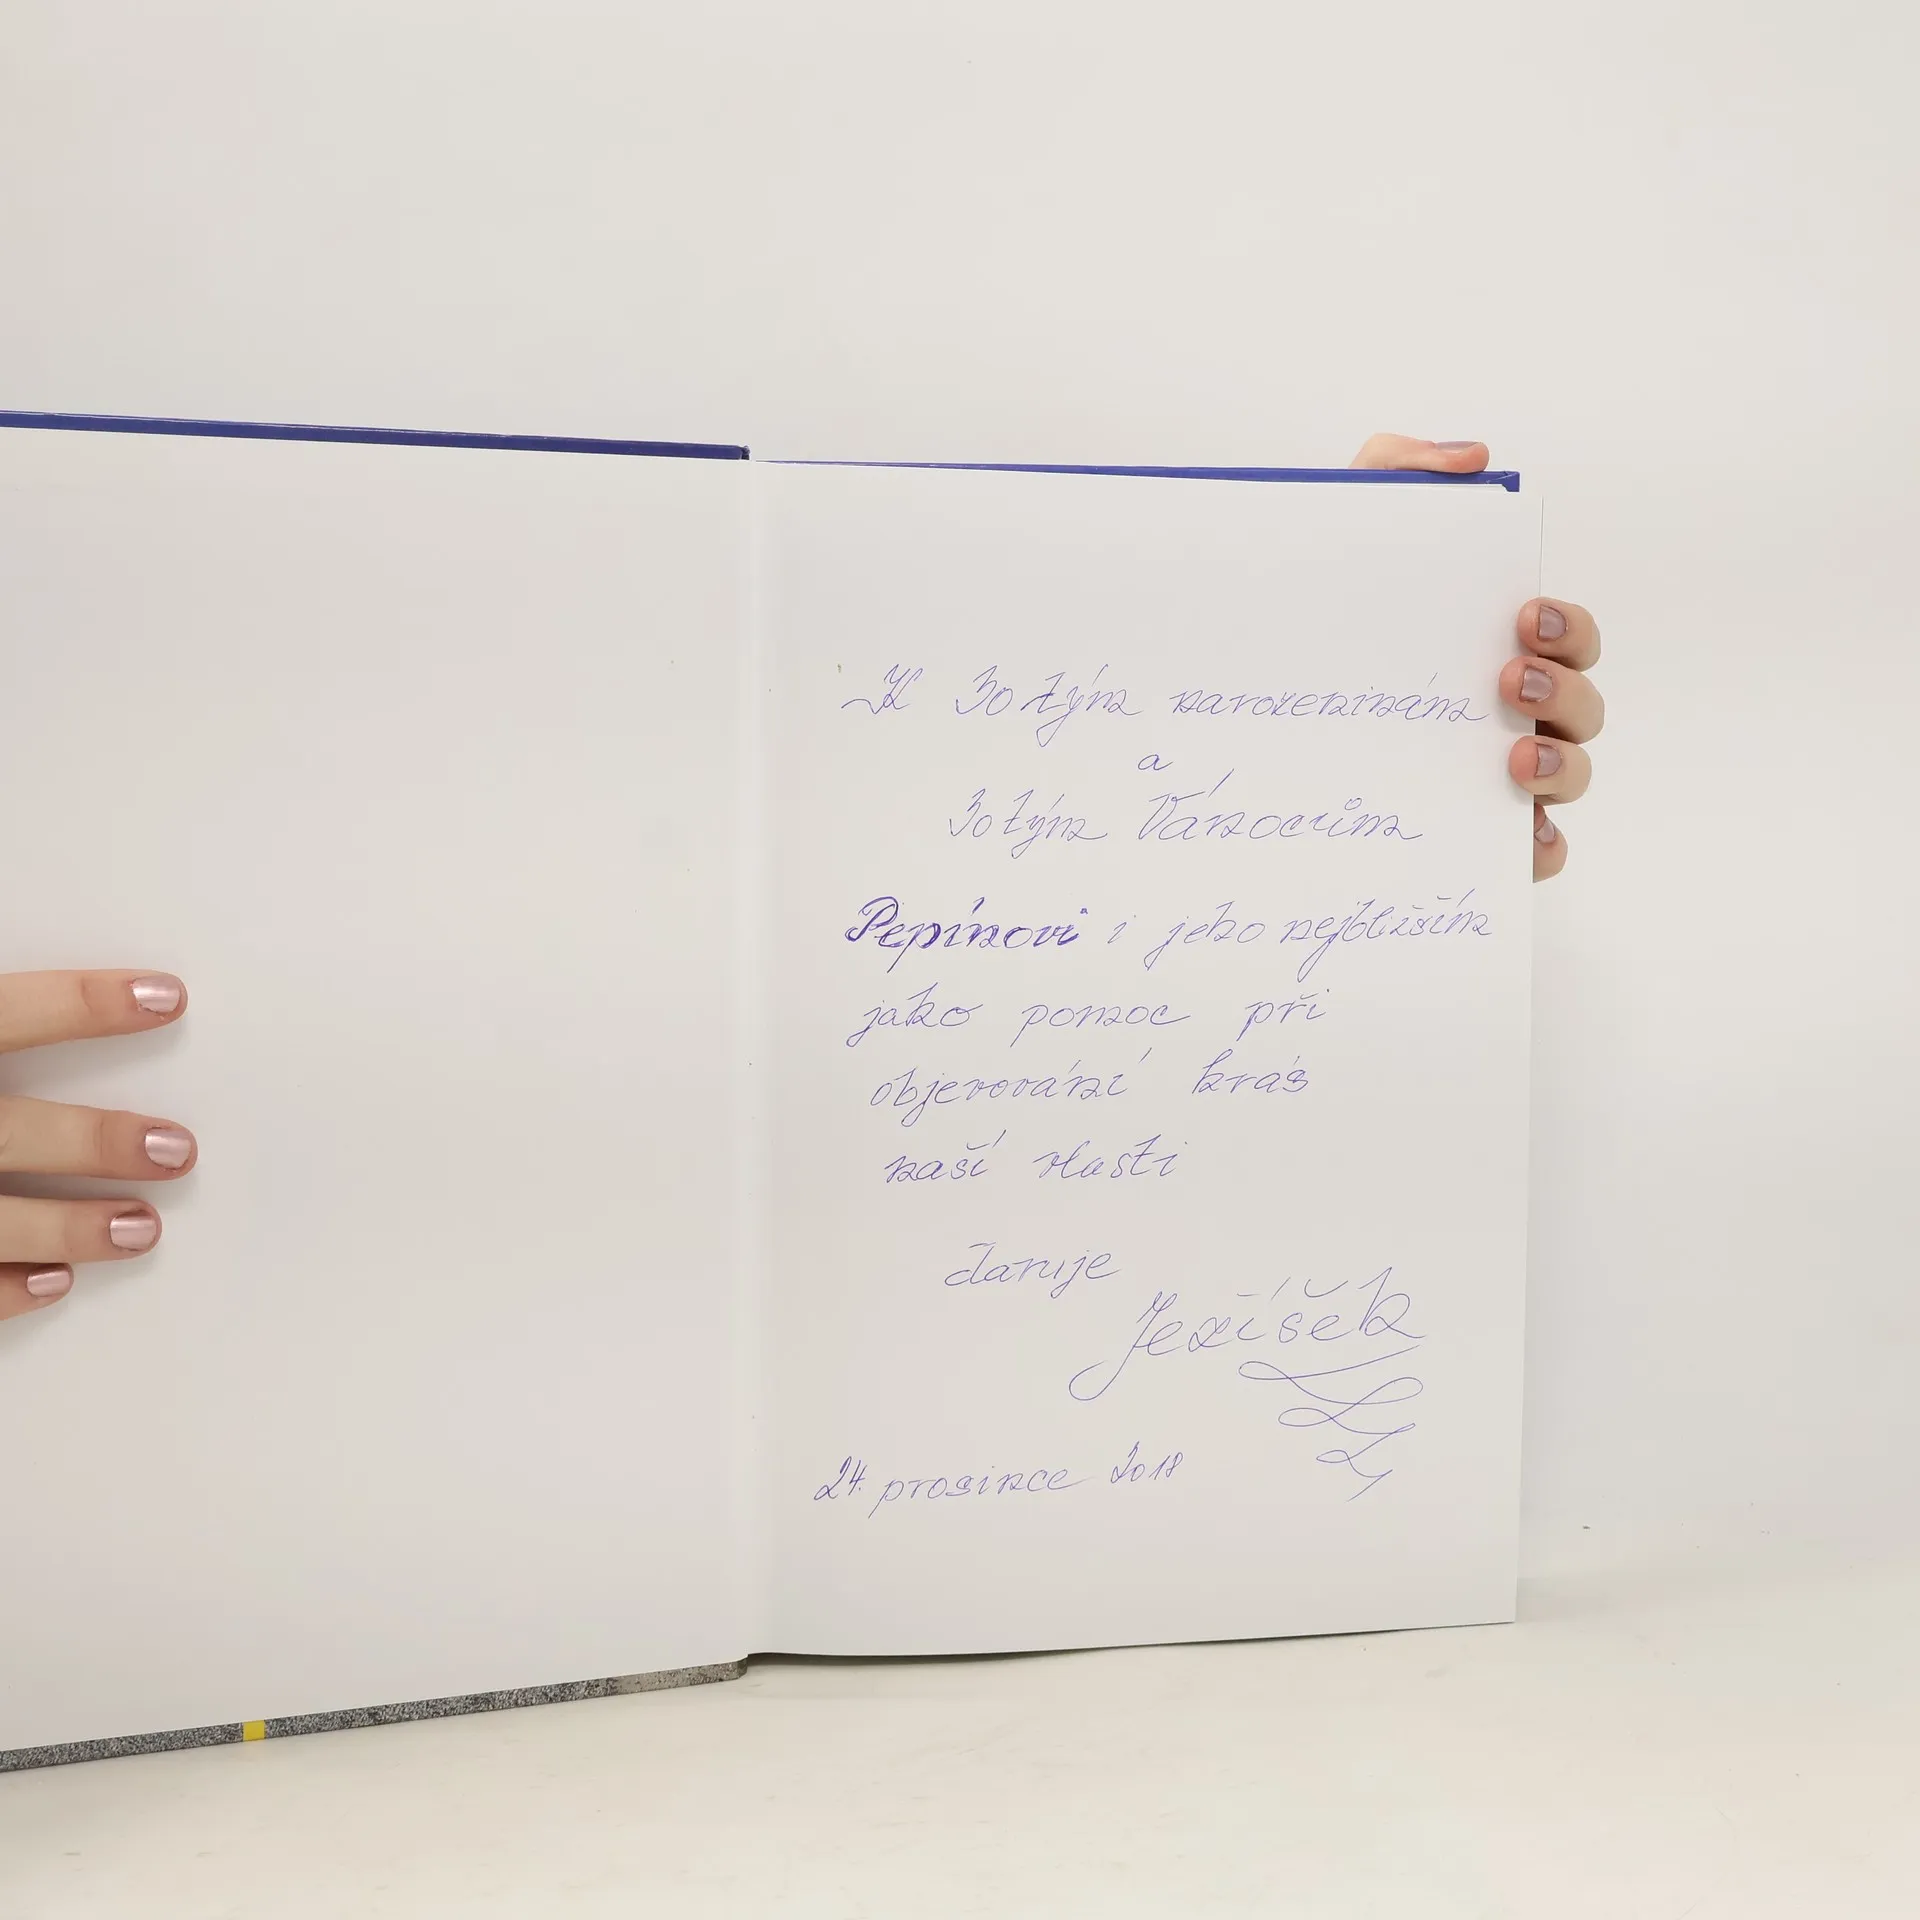 K 30tým narozeninám
a
30tým Vánocům
Pepínovi i jeho nejbližším
jako pomoc při
objevování krás
naší vlasti
daruje
Ježíšek
24. prosince 2018